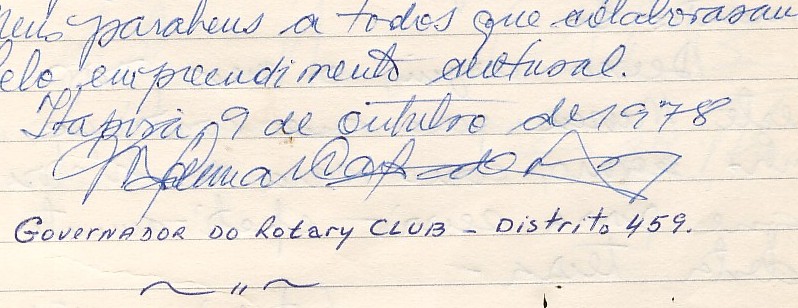 parabens a todos que colaboraram
pelo empreendimento cultural.
Itapira, 9 de outubro de 1978
Governador do Rotary CLUB - Distrito 459.
~ " ~